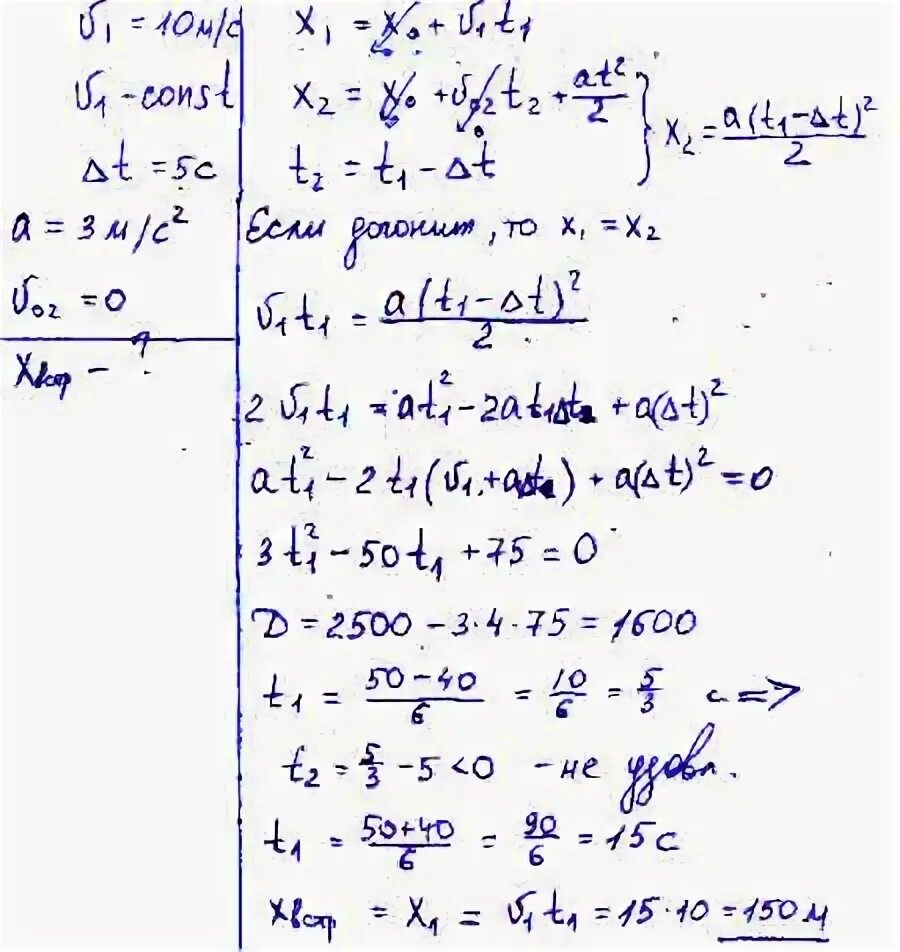 v₁ = 10 м/с
v₁ – const
Δt = 5 с
a = 3 м/с²
v₀₂ = 0
xвстр – ?
x₁ = x₀ + v₁t₁
x₂ = x₀ + v₀₂t₂ + at²/2
t₂ = t₁ – Δt
x₂ = a(t₁ – Δt)²/2
Если догонит, то x₁ = x₂
v₁t₁ = a(t₁ – Δt)²/2
2v₁t₁ = at₁² – 2at₁Δt + a(Δt)²
at₁² – 2t₁(v₁ + aΔt) + a(Δt)² = 0
3t₁² – 50t₁ + 75 = 0
D = 2500 – 3·4·75 = 1600
t₁ = (50 – 40)/6 = 10/6 = 5/3 с =>
t₂ = 5/3 – 5 < 0 – не удовл.
t₁ = (50+40)/6 = 90/6 = 15 с
xвстр = x₁ = v₁t₁ = 15·10 = 150 м